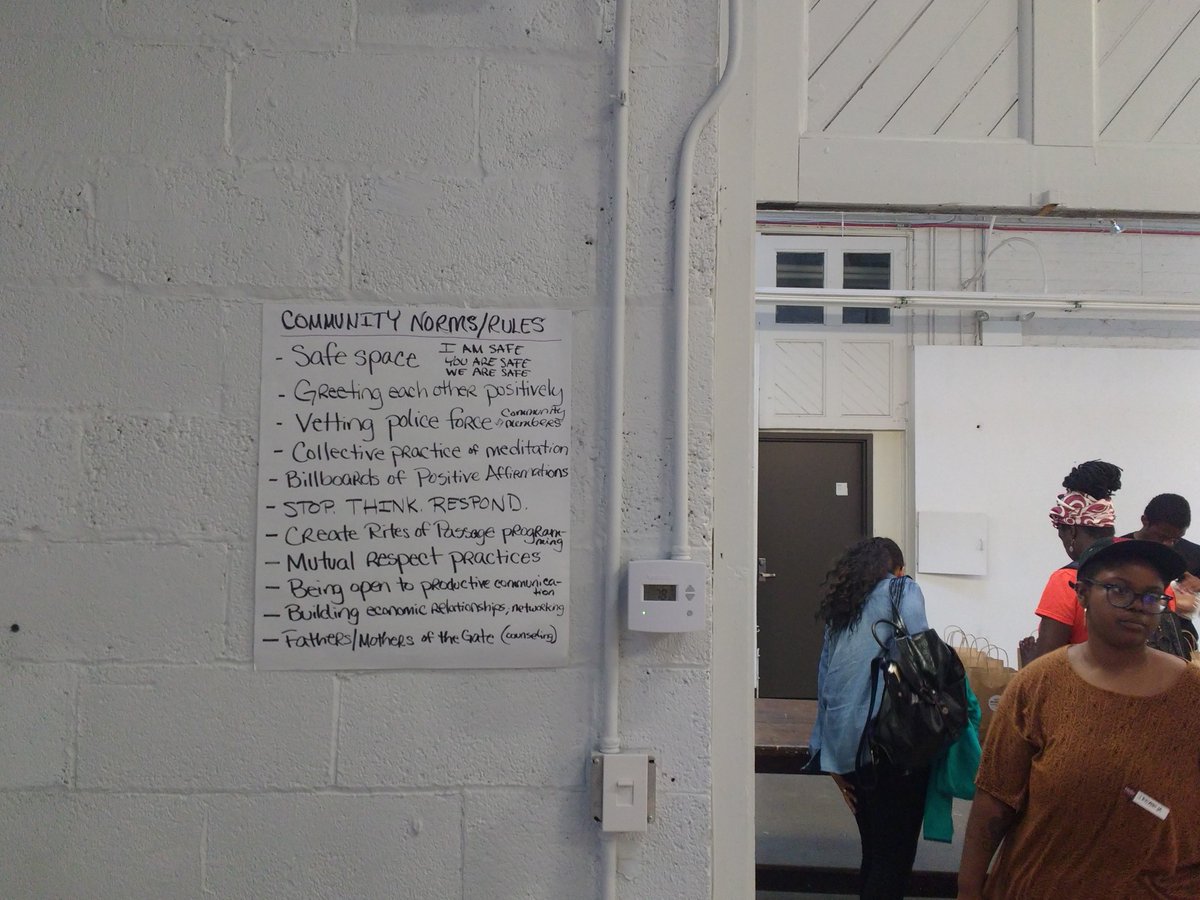 COMMUNITY NORMS/RULES
- Safe space I AM SAFE
YOU ARE SAFE
WE ARE SAFE
- Greeting each other positively
- Vetting police force community
members
- Collective practice of meditation
- Billboards of Positive Affirmations
- STOP. THINK. RESPOND.
- Create Rites of Passage program-
ming
- Mutual Respect practices
- Being open to productive communica-
tion
- Building economic relationships, networking
- Fathers/Mothers of the Gate (counseling)